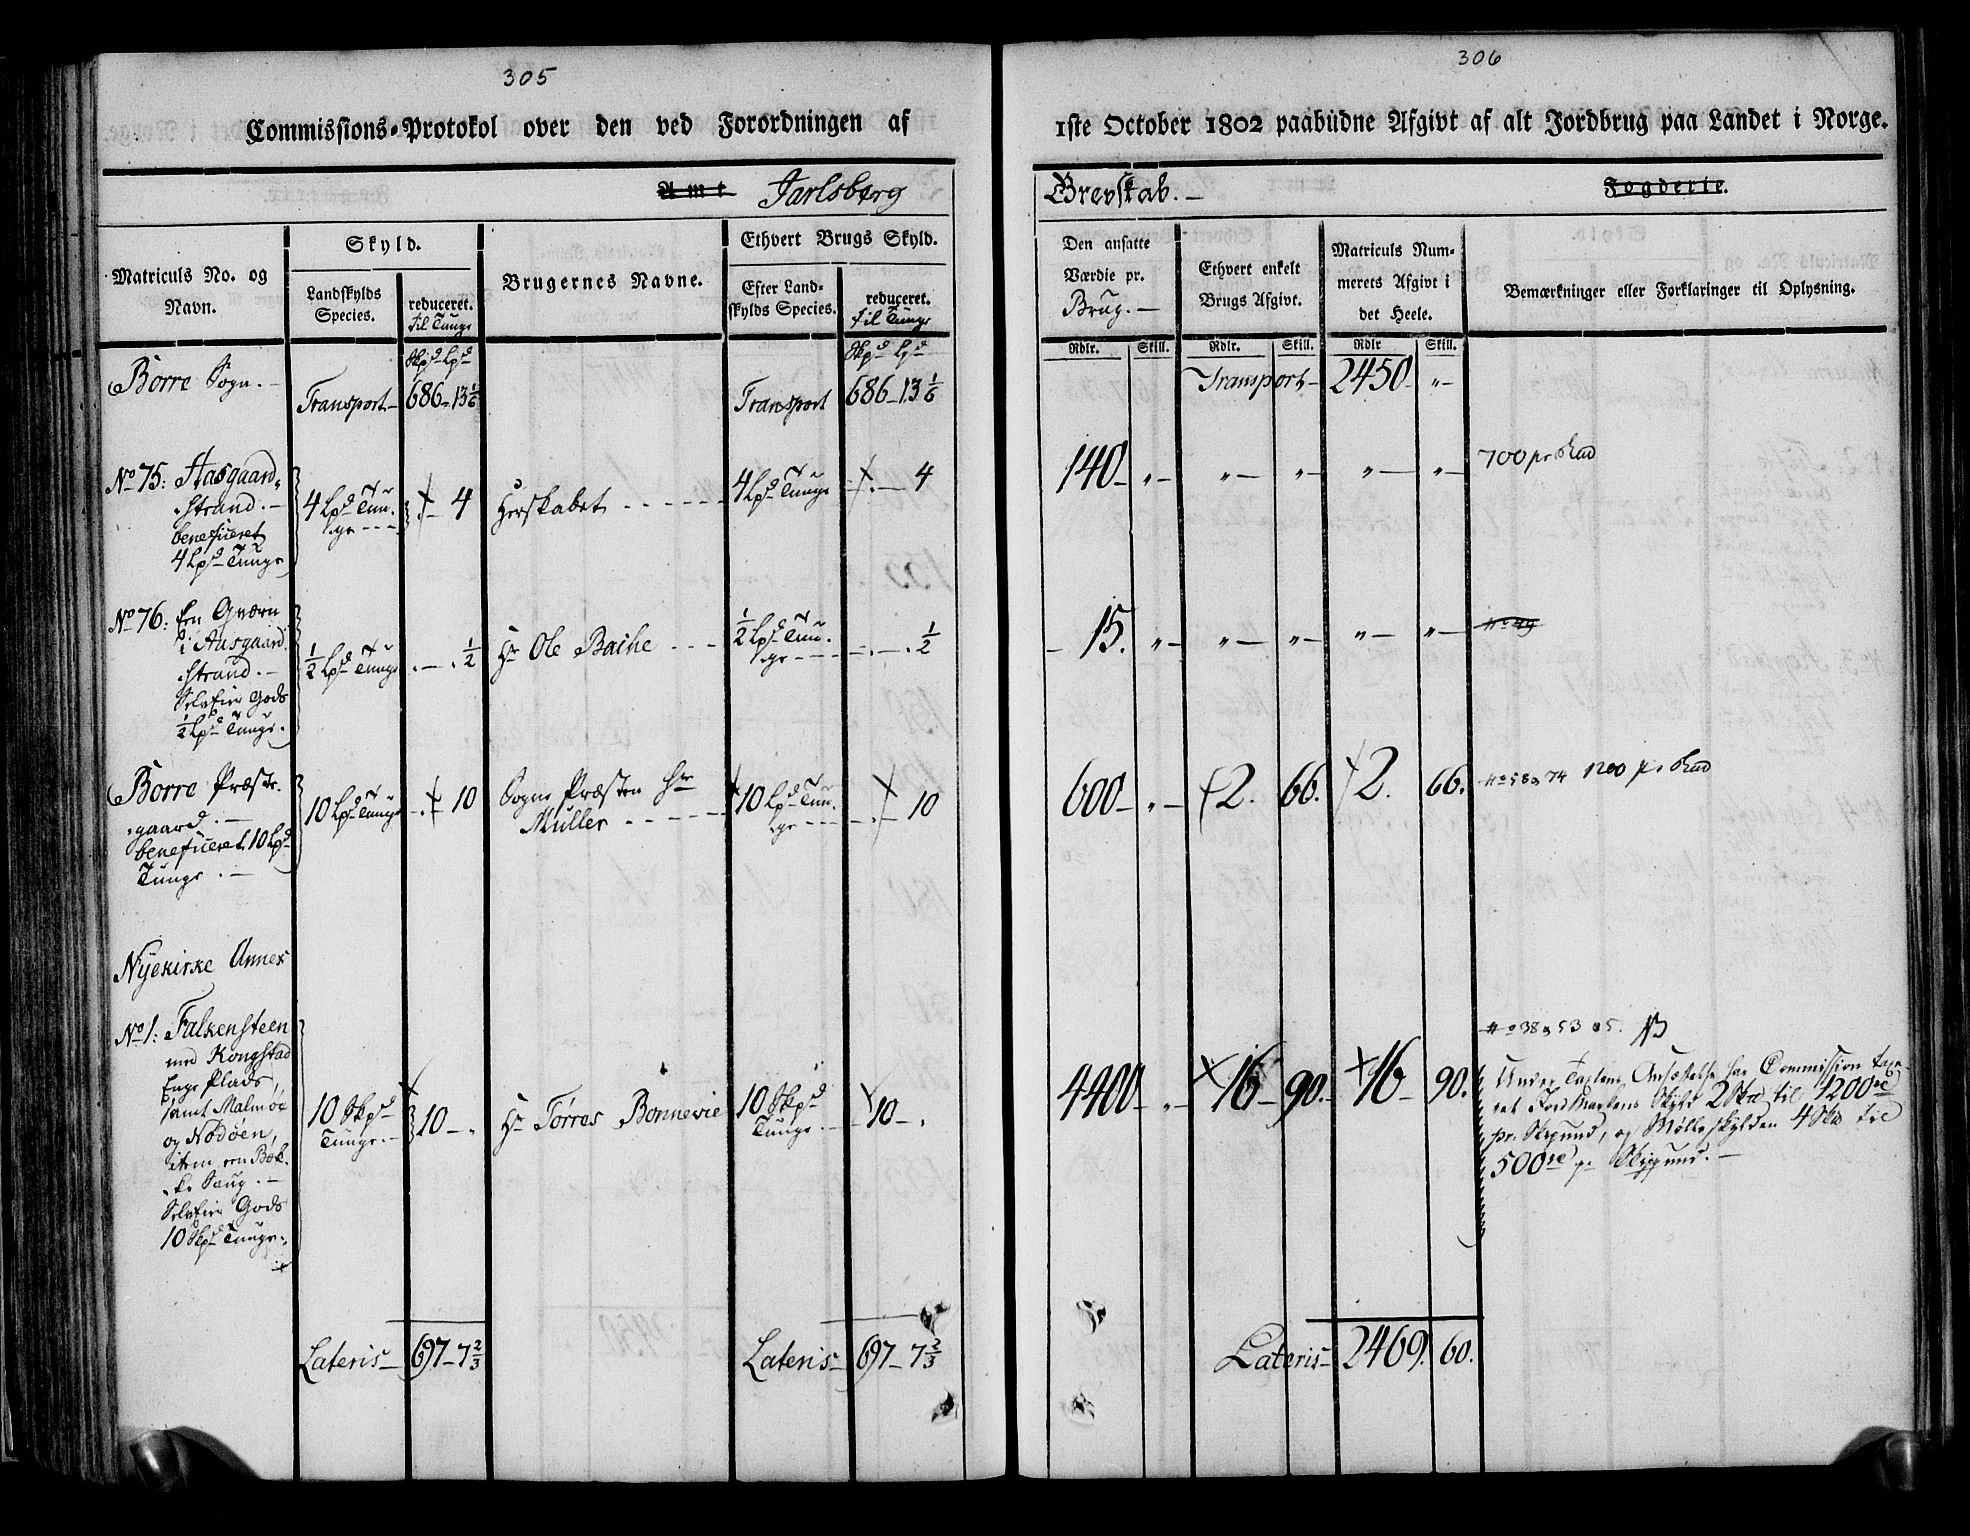 305
Commissions-Protokol over den ved Forordningen af
Amt Jarlsberg
Matriculs No. og Navn.
Skyld.
Landskylds Species.
reduceret. til Tunge
Brugernes Navne.
Ethvert Brugs Skyld.
Efter Landskylds Species.
reduceret. til Tunge
Skpd Lpd
Skpd Lpd
Borre Sogn. -
Transport -
686 - 13 1/6
Transport
686 - 13 1/6
No 75: Aasgaard-
strand. -
beneficeret
4 Lpd Tunge
4 Lpd Tun-
ge - - -
. - 4
Herskabet - - - -
4 Lpd Tunge
. - 4
No 76: Een Qværn
i Aasgaard-
strand. -
Selveier Gods
1/2 Lpd Tunge.
1/2 Lpd Tunge
. - . 1/2
Hr Ole Bache - - -
1/2 Lpd Tun-
ge - - -
- . - . 1/2
Borre Præste-
gaard. -
beneficeret 10 Lpd
Tunge . -
10 Lpd Tunge
- . - 10
Sogne Præsten Hr
Müller - - - - -
10 Lpd Tun-
ge - - -
. - 10
Nyekirke Annex
No 1: Falkensteen
med Kongstad
Enge Plads,
samt Malmøe
og Nødøen,
item een Bæk-
ke Saug. -
Selveier Gods
10 Skpd Tunge.
10 Skpd
Tunge. -
10 - .
Hr Tørres Bonnevie
10 Skpd
Tunge. -
10 - .
Lateris -
697 - 7 2/3
Lateris -
697 - 7 2/3
306
1ste October 1802 paabudne Afgivt af alt Jordbrug paa Landet i Norge.
Grevskab. -
Fogderie.
Den ansatte Værdie pr. Brug. -
Ethvert enkelt Brugs Afgivt.
Matriculs Nummerets Afgivt i det Heele.
Bemærkninger eller Forklaringer til Oplysning.
Rdlr. Skill. Rdlr. Skill. Rdlr Skill.
Transport - 2450 - " -
140 - " - " - " - " - " - 700 pr
- 15. " - " - " - " - " -
600 - " - 2. 66. 2. 66. No 58 74 1200 pr
4400 - " - 16 - 90. - 16 - 90.
No 38 53 5. NB
Under Taxtens Ansættelse har Commission taxe-
ret Jord Marhens Skyld 2 til 1200
pr. Skpund, og Mølleskylden 4 til
500 pr Skippund. -
Lateris - 2469. 60.